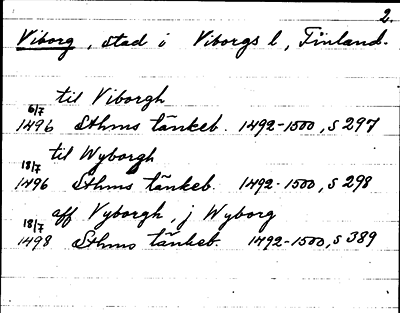 2.
Viborg, stad i Viborgs l, Finland.
til Viborgh
6/7
1496 Sthms tänkeb. 1492-1500, s 297
til Wyborgh
18/7
1496 Sthms tänkeb. 1492-1500, s 298
aff Vyborgh, j Wyborg
18/7
1498 Sthms tänkeb. 1492-1500, s 389